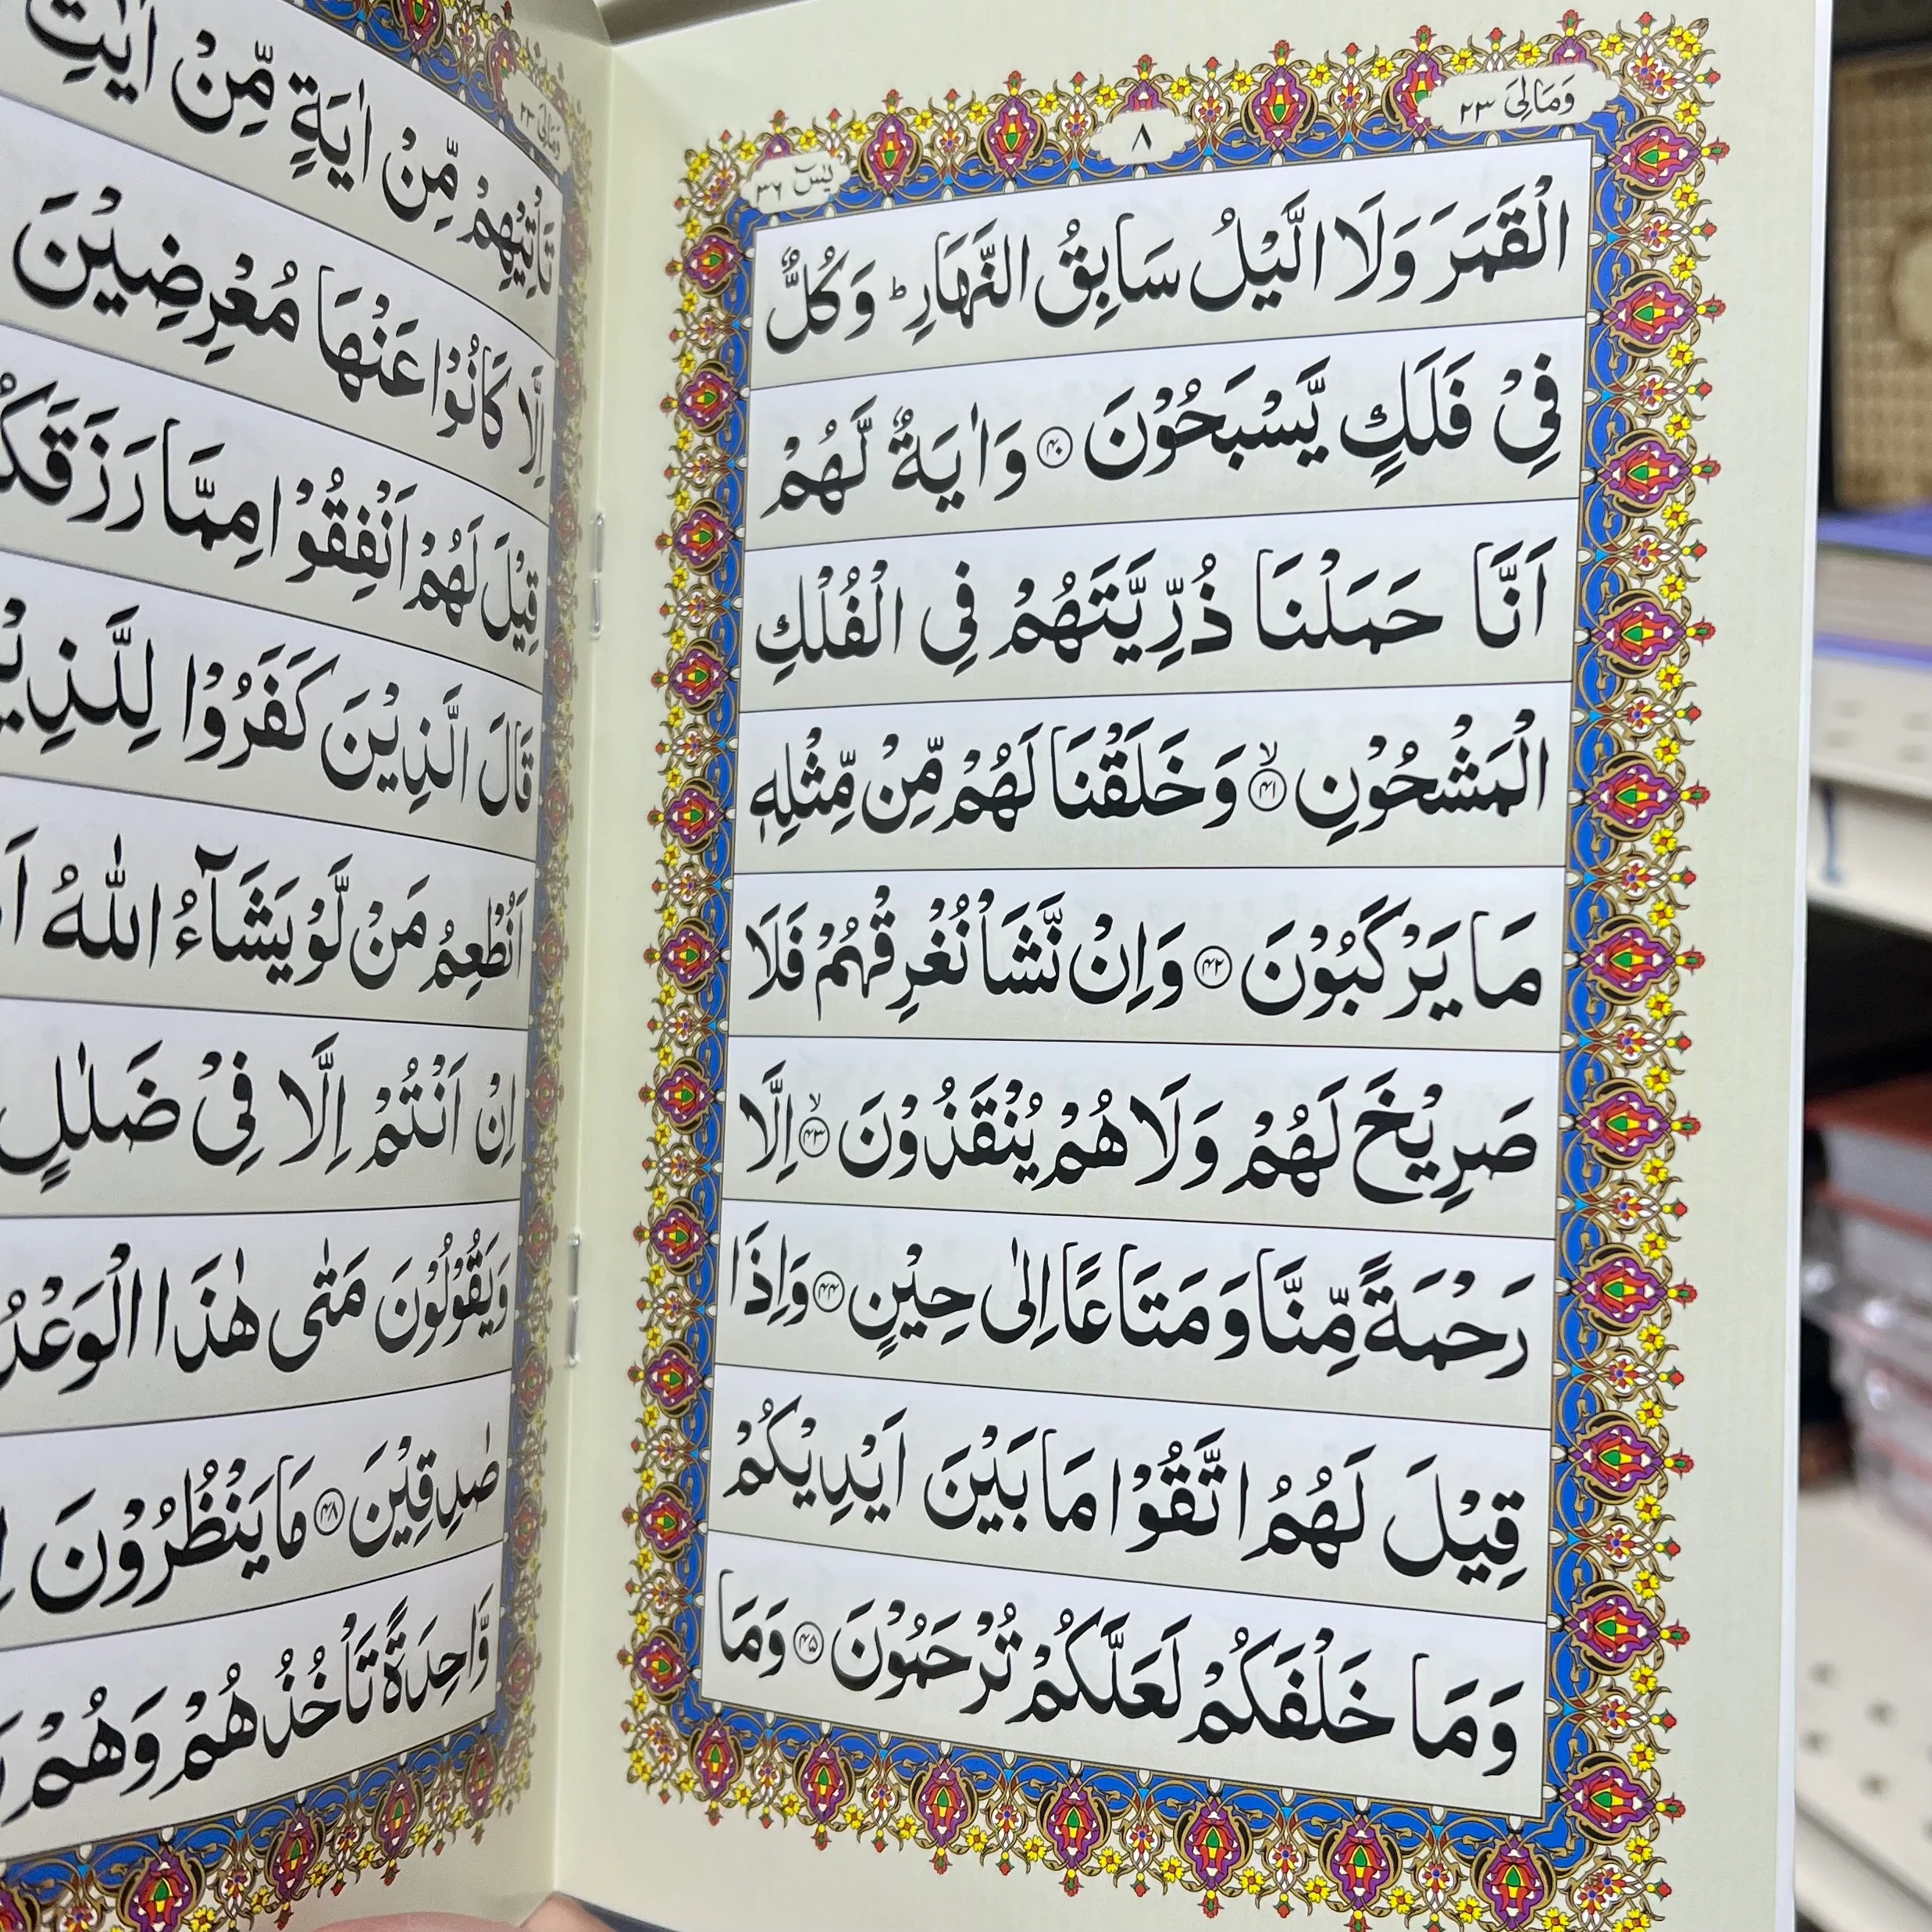 وَمَالِیَ ٢٣
٨
يٰسٓ ٣٦
الْقَمَرَ وَلَا الَّيْلُ سَابِقُ النَّهَارِ ؕ وَكُلٌّ
فِيْ فَلَكٍ يَّسْبَحُوْنَ ۴۰ وَاٰيَةٌ لَّهُمْ
اَنَّا حَمَلْنَا ذُرِّيَّتَهُمْ فِي الْفُلْكِ
الْمَشْحُوْنِ ۴۱ ۙ وَخَلَقْنَا لَهُمْ مِّنْ مِّثْلِهٖ
مَا يَرْكَبُوْنَ ۴۲ وَاِنْ نَّشَاْ نُغْرِقْهُمْ فَلَا
صَرِيْخَ لَهُمْ وَلَا هُمْ يُنْقَذُوْنَ ۴۳ ۙ اِلَّا
رَحْمَةً مِّنَّا وَمَتَاعًا اِلٰى حِيْنٍ ۴۴ وَاِذَا
قِيْلَ لَهُمُ اتَّقُوْا مَا بَيْنَ اَيْدِيْكُمْ
وَمَا خَلْفَكُمْ لَعَلَّكُمْ تُرْحَمُوْنَ ۴۵ وَمَا
وَمَالِیَ ٢٣
تَاْتِيْهِمْ مِّنْ اٰيَةٍ مِّنْ اٰيٰتِ
اِلَّا كَانُوْا عَنْهَا مُعْرِضِيْنَ
قِيْلَ لَهُمْ اَنْفِقُوْا مِمَّا
قَالَ الَّذِيْنَ كَفَرُوْا
اَنُطْعِمُ مَنْ لَّوْ يَشَآءُ اللّٰهُ
اِنْ اَنْتُمْ اِلَّا فِيْ ضَلٰلٍ
وَيَقُوْلُوْنَ مَتٰى هٰذَا الْوَعْدُ
صٰدِقِيْنَ ۴۸ مَا يَنْظُرُوْنَ
وَّاحِدَةً تَاْخُذُهُمْ وَهُمْ